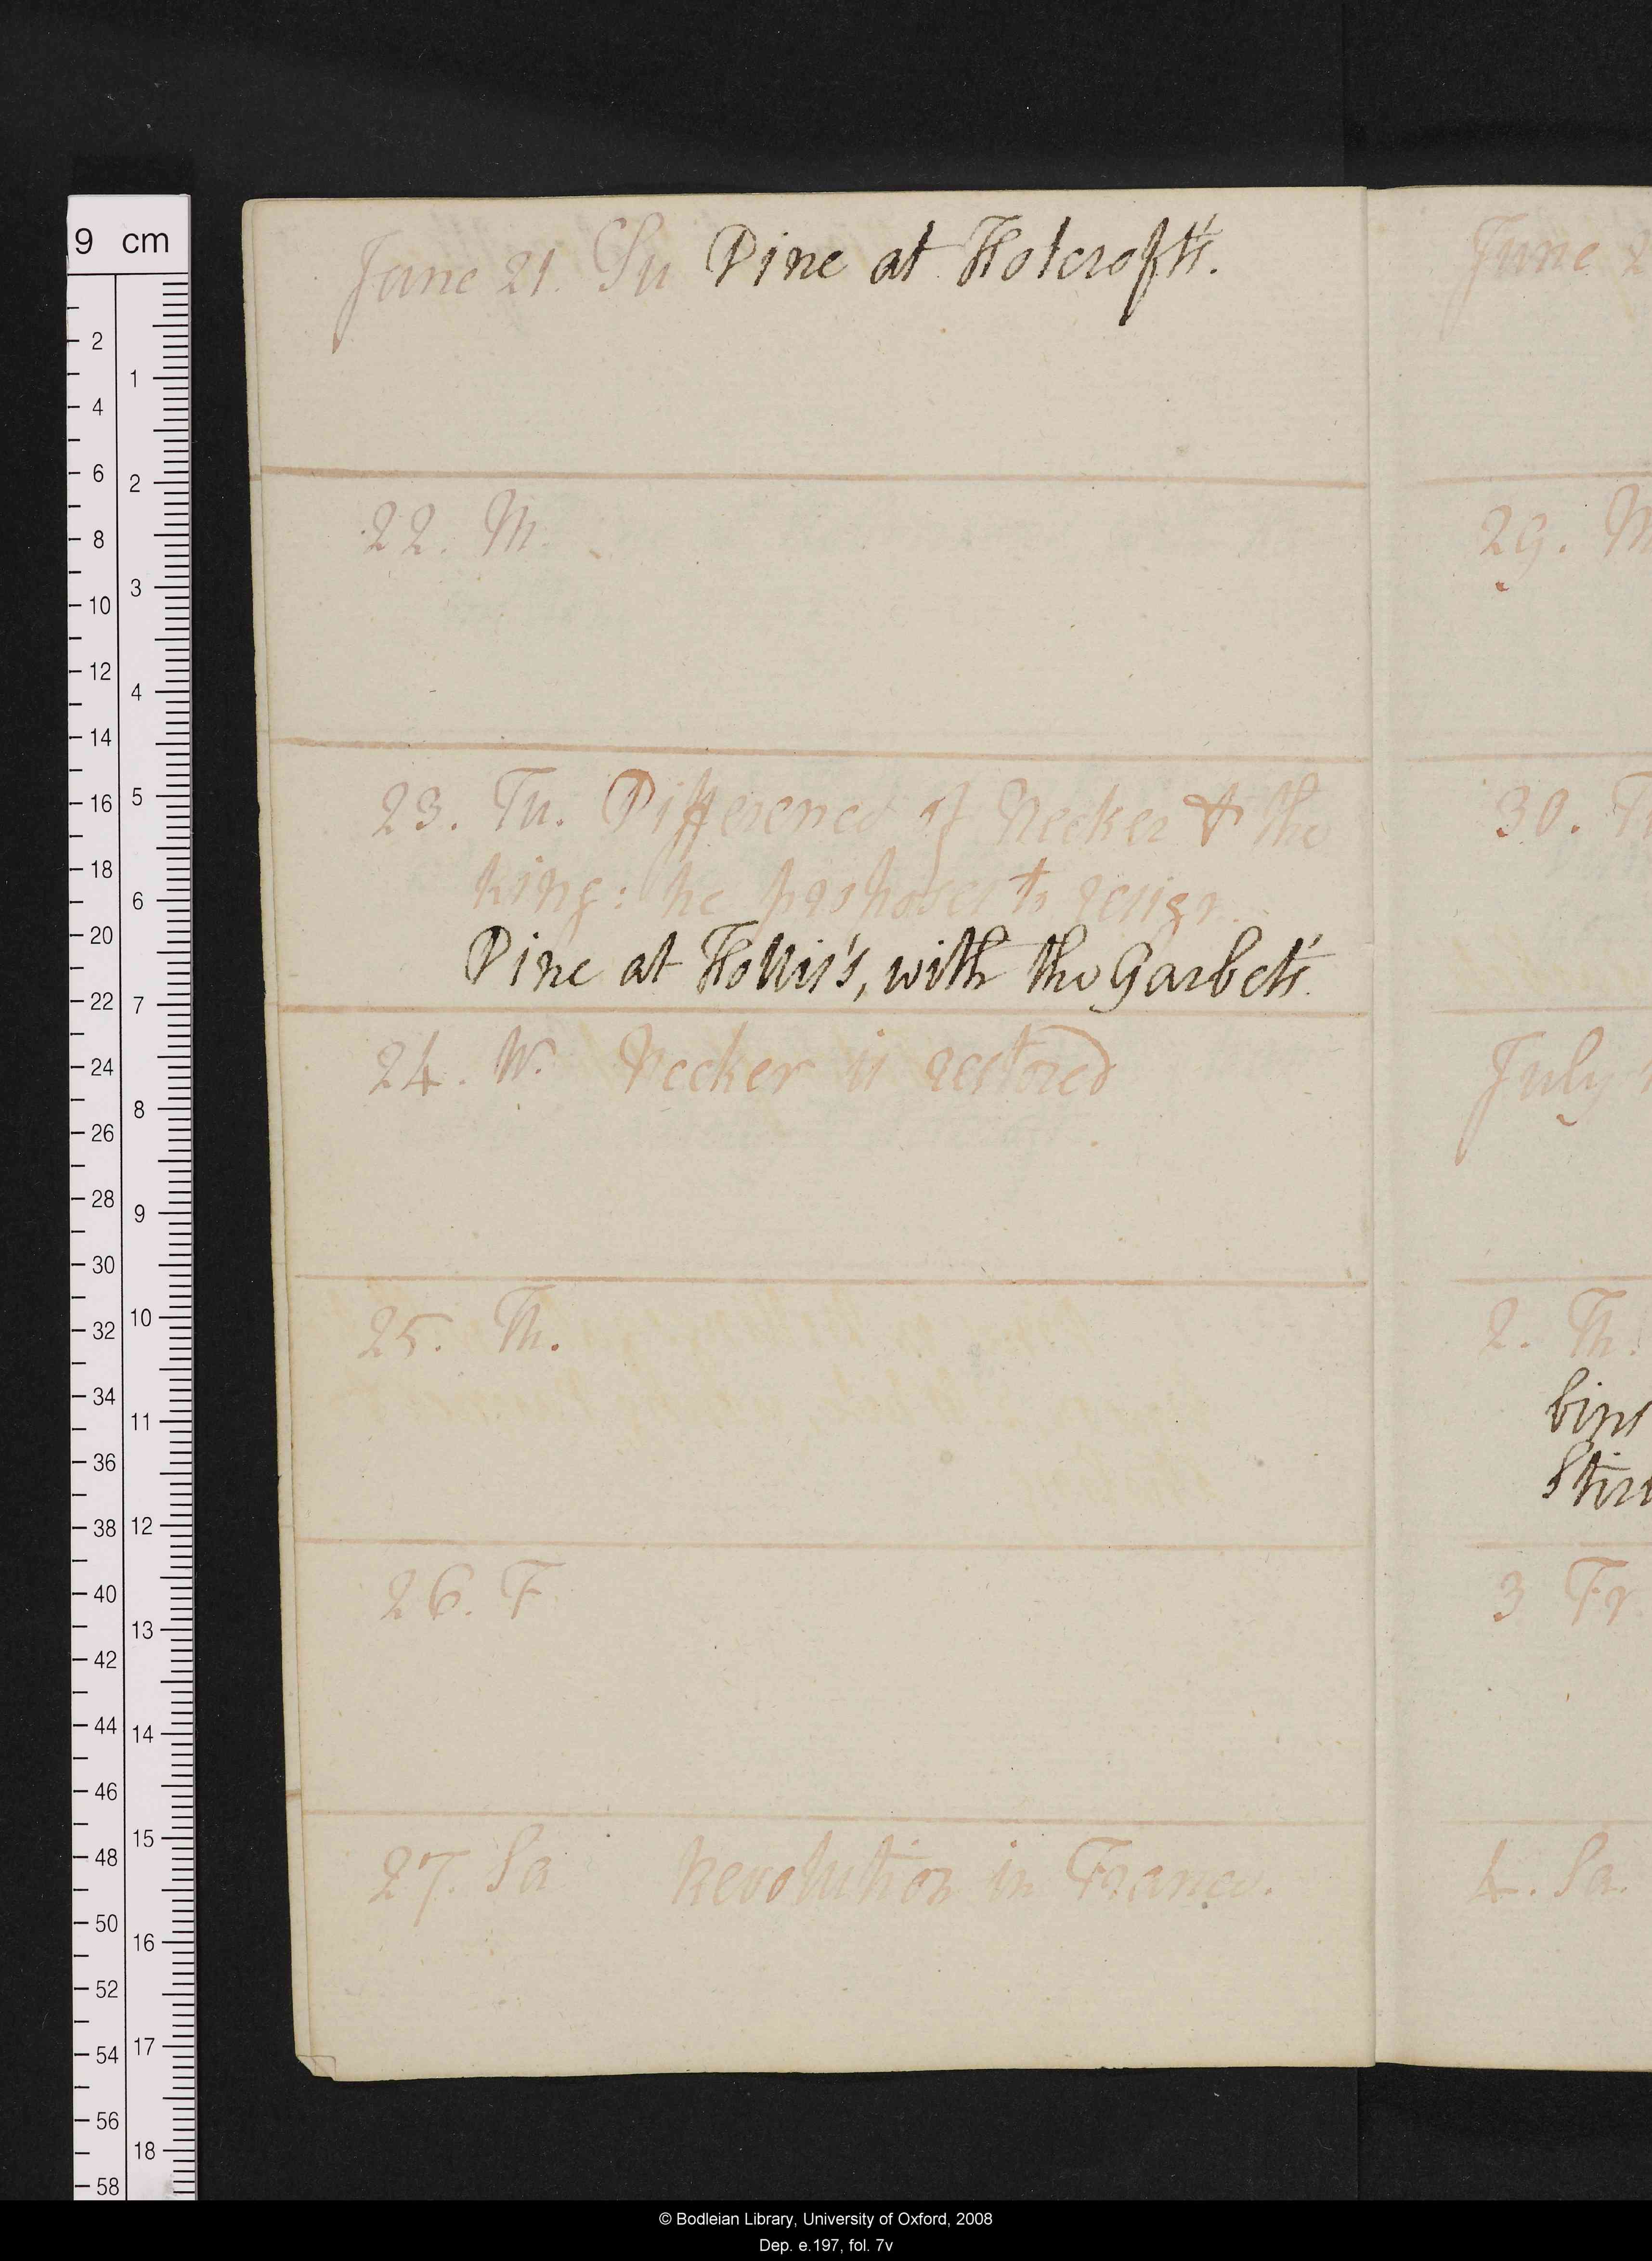 June 21. Su Dine at Holcroft's.
22. M.
23. Tu. Difference of Necker & the
king: he proposes to resign.
Dine at Hollis's, with the Garbets.
24. W. Necker is restored
25. Th.
26. F
27. Sa Revolution in France.
June 2
29. M
30. T
July 1
2. Th.
bins
Stin
3 Fr
4. Sa.
9 cm
2
4
6
8
10
12
14
16
18
20
22
24
26
28
30
32
34
36
38
40
42
44
46
48
50
52
54
56
58
1
2
3
4
5
6
7
8
9
10
11
12
13
14
15
16
17
18
© Bodleian Library, University of Oxford, 2008
Dep. e.197, fol. 7v